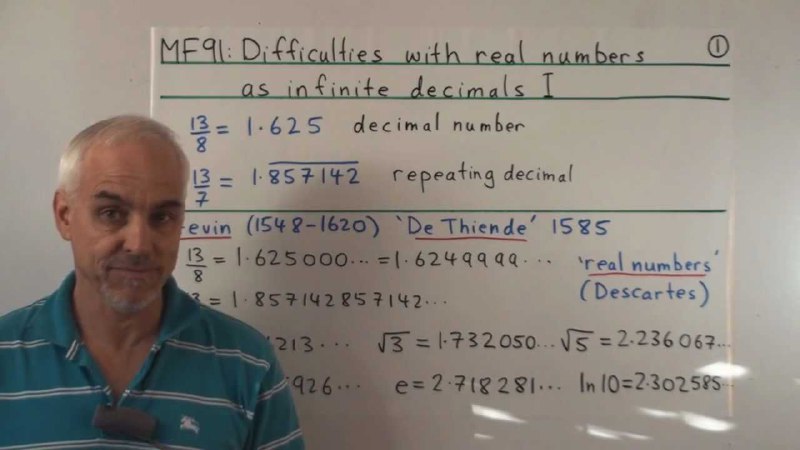 MF91: Difficulties with real numbers ①
as infinite decimals I
13/8 = 1·625 decimal number
13/7 = 1·857142 repeating decimal
evin (1548-1620) 'De Thiende' 1585
13/8 = 1·625000··· = 1·6249999··· 'real numbers'
= 1·857142857142··· (Descartes)
213··· √3 = 1·732050... √5 = 2·236067···
926··· e = 2·718281··· ln 10 = 2·302585...